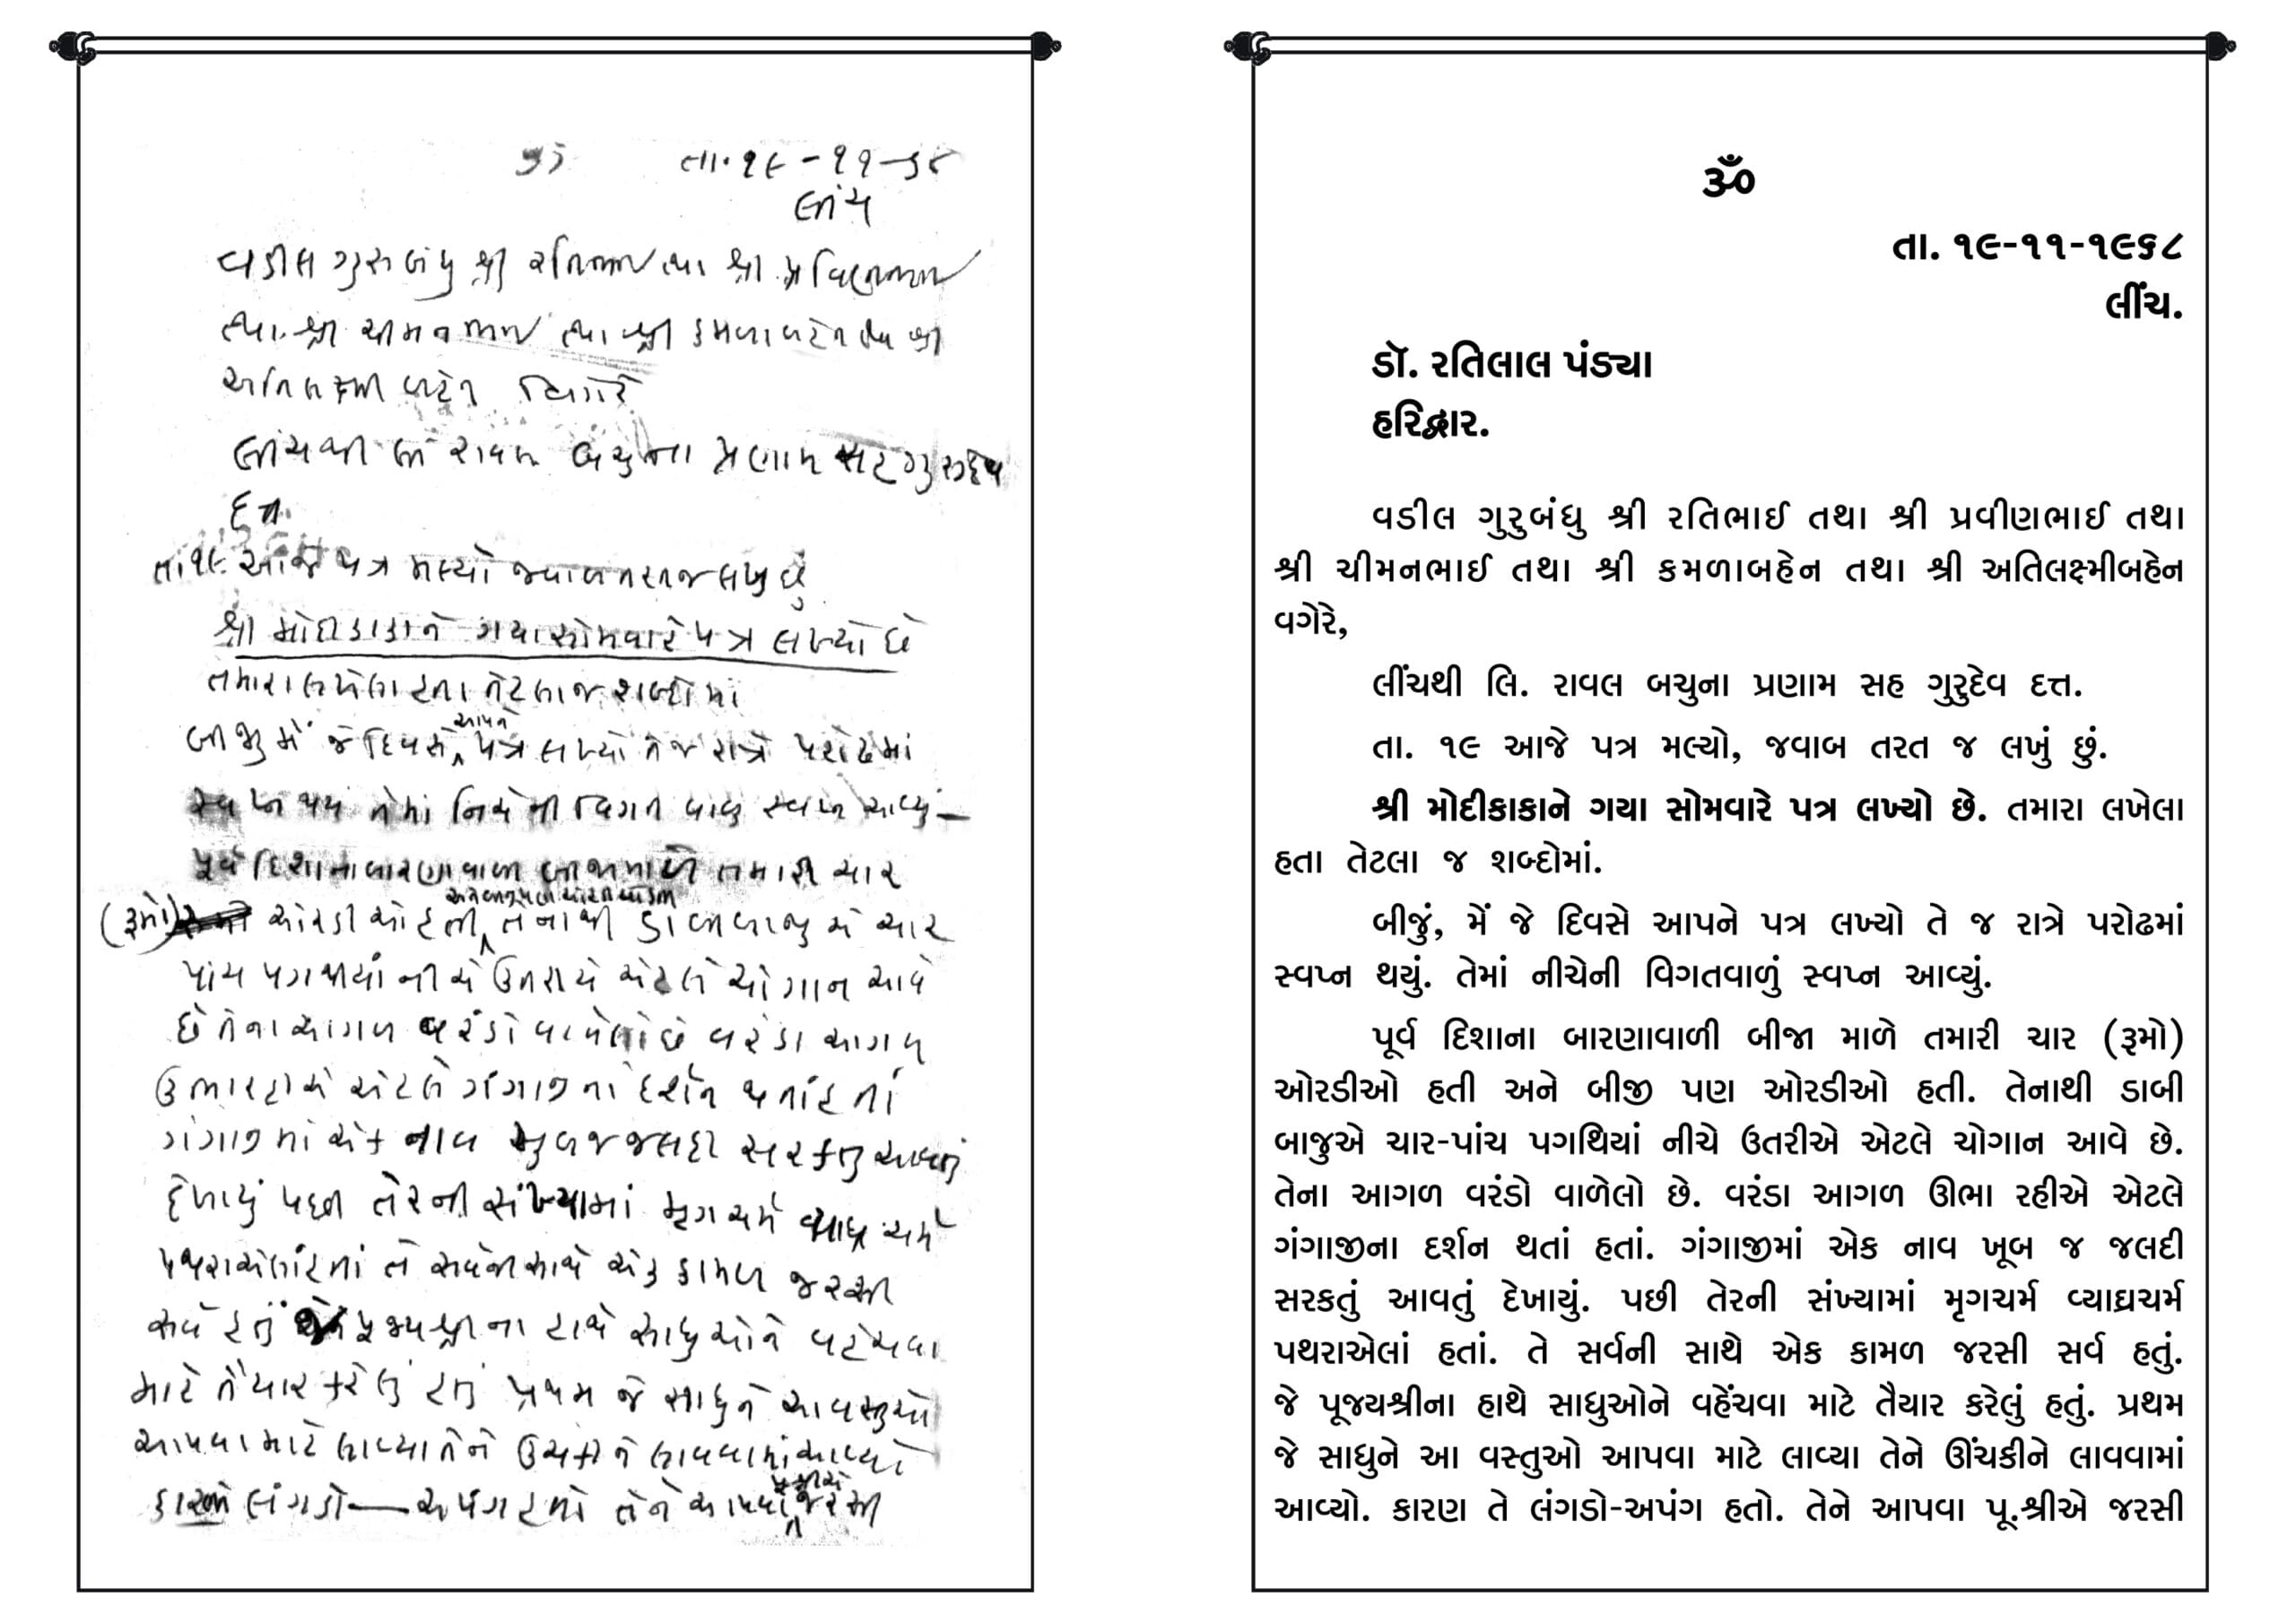 ૐ
તા. ૧૯-૧૧-૬૮
લીંચ
વડીલ ગુરુબંધુ શ્રી રતિભાઈ તથા શ્રી પ્રવિણભાઈ
તથા શ્રી ચીમનભાઈ તથા શ્રી કમળાબહેન તથા શ્રી
અતિલક્ષ્મી બહેન વિગેરે
લીંચથી લી રાવળ બચુના પ્રણામ સહ ગુરુદેવ
દત્ત.
તા ૧૯ આજે પત્ર મલ્યો જવાબ તરત જ લખુ છું
શ્રી મોદીકાકાને ગયા સોમવારે પત્ર લખ્યો છે
તમારા લખેલા હતા તેટલા જ શબ્દોમાં
બીજુ મેં જે દિવસે આપને પત્ર લખ્યો તે જ રાત્રે પરોઢમાં
સ્વપ્ન થયું તેમાં નિચેની વિગત વાળુ સ્વપ્ન આવ્યું—
પૂર્વ દિશાના બારણાવાળી બીજા માળે તમારી ચાર
(રૂમો) ઓરડીઓ હતી તેનાથી ડાબી બાજુએ ચાર
પાંચ પગથીયાં નીચે ઉતરીયે એટલે ચોગાન આવે
છે તેના આગળ વરંડો વાળેલો છે વરંડા આગળ
ઉભા રહીએ એટલે ગંગાજીના દર્શન થતાં હતાં
ગંગાજીમાં એક નાવ ખુબ જ જલદી સરકતુ આવતું
દેખાયું પછી તેરની સંખ્યામાં મૃગચર્મ વ્યાઘ્ર ચર્મ
પથરાએલાં હતાં તે સર્વેની સાથે એક કામળ જરસી
સર્વે હતું જે પૂજ્યશ્રીના હાથે સાધુઓને વહેંચવા
માટે તૈયાર કરેલું હતું પ્રથમ જે સાધુને આ વસ્તુઓ
આપવા માટે લાવ્યા તેને ઉચકીને લાવવામાં આવ્યો
કારણ લંગડો—અપંગ હતો તેને આપવા પૂ.શ્રીએ જરસી
ૐ
તા. ૧૯-૧૧-૧૯૬૮
લીંચ.
ડૉ. રતિલાલ પંડ્યા
હરિદ્વાર.
વડીલ ગુરુબંધુ શ્રી રતિભાઈ તથા શ્રી પ્રવીણભાઈ તથા
શ્રી ચીમનભાઈ તથા શ્રી કમળાબહેન તથા શ્રી અતિલક્ષ્મીબહેન
વગેરે,
લીંચથી લિ. રાવલ બચુના પ્રણામ સહ ગુરુદેવ દત્ત.
તા. ૧૯ આજે પત્ર મલ્યો, જવાબ તરત જ લખું છું.
શ્રી મોદીકાકાને ગયા સોમવારે પત્ર લખ્યો છે. તમારા લખેલા
હતા તેટલા જ શબ્દોમાં.
બીજું, મેં જે દિવસે આપને પત્ર લખ્યો તે જ રાત્રે પરોઢમાં
સ્વપ્ન થયું. તેમાં નીચેની વિગતવાળું સ્વપ્ન આવ્યું.
પૂર્વ દિશાના બારણાવાળી બીજા માળે તમારી ચાર (રૂમો)
ઓરડીઓ હતી અને બીજી પણ ઓરડીઓ હતી. તેનાથી ડાબી
બાજુએ ચાર-પાંચ પગથિયાં નીચે ઉતરીએ એટલે ચોગાન આવે છે.
તેના આગળ વરંડો વાળેલો છે. વરંડા આગળ ઊભા રહીએ એટલે
ગંગાજીના દર્શન થતાં હતાં. ગંગાજીમાં એક નાવ ખૂબ જ જલદી
સરકતું આવતું દેખાયું. પછી તેરની સંખ્યામાં મૃગચર્મ વ્યાઘ્રચર્મ
પથરાએલાં હતાં. તે સર્વની સાથે એક કામળ જરસી સર્વ હતું.
જે પૂજ્યશ્રીના હાથે સાધુઓને વહેંચવા માટે તૈયાર કરેલું હતું. પ્રથમ
જે સાધુને આ વસ્તુઓ આપવા માટે લાવ્યા તેને ઊંચકીને લાવવામાં
આવ્યો. કારણ તે લંગડો-અપંગ હતો. તેને આપવા પૂ.શ્રીએ જરસી